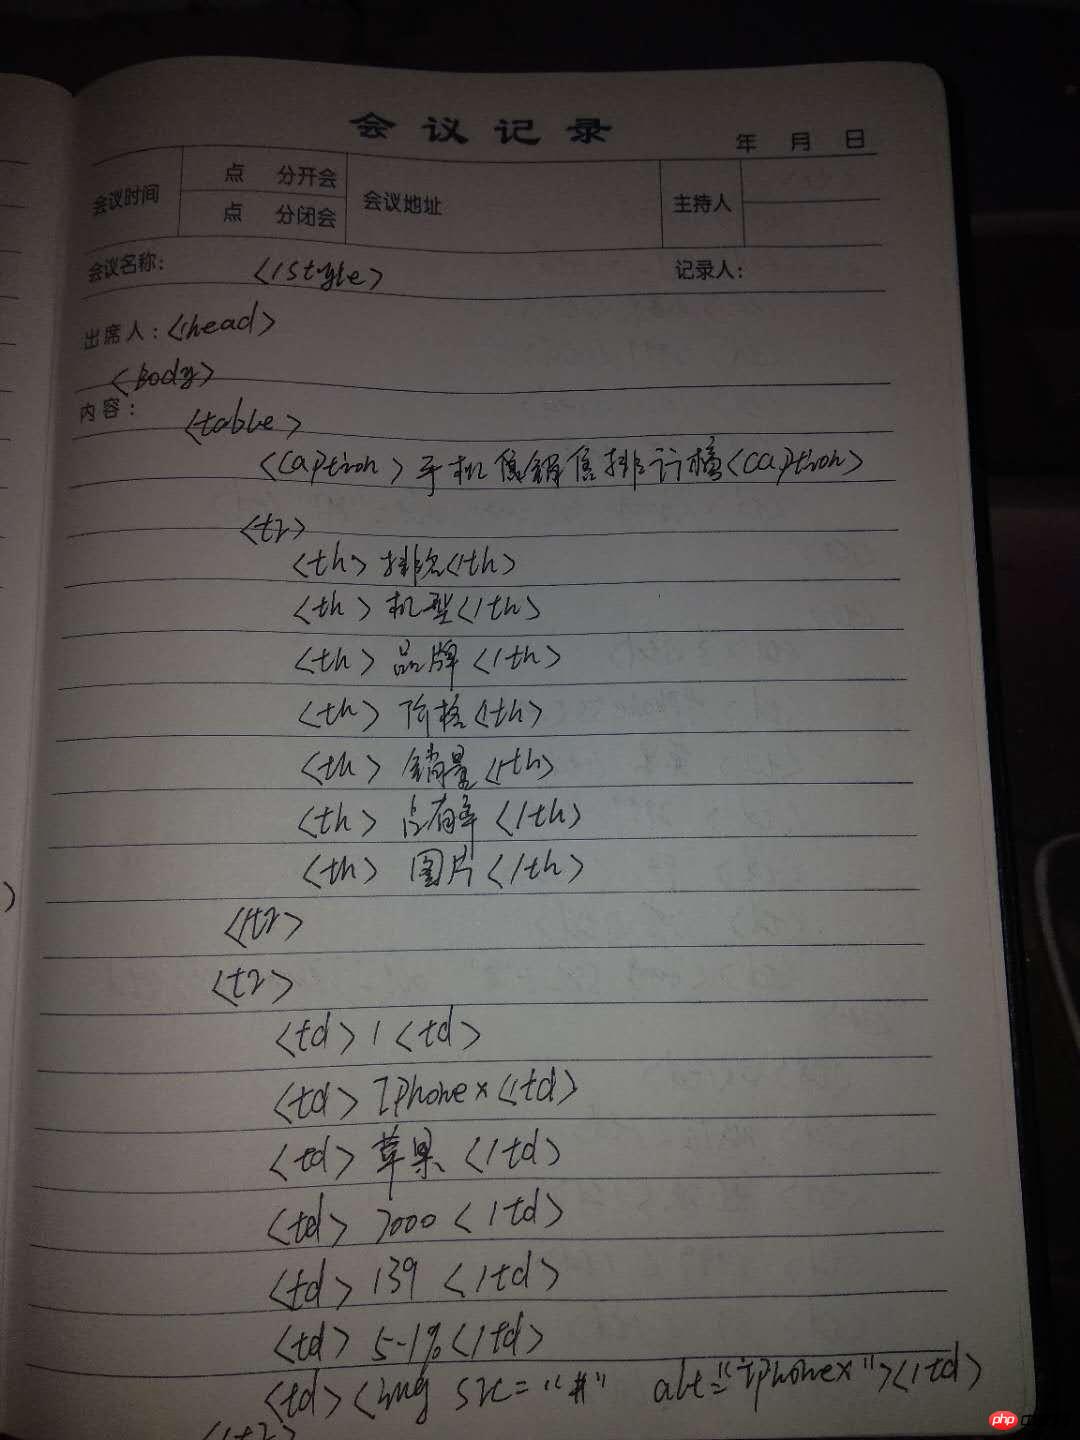 会议记录
年 月 日
会议时间 点 分开会 会议地址 主持人
点 分闭会
会议名称: </style> 记录人:
出席人: </head>
<Body>
内容:
<table>
<caption>手机售销售排行榜<caption>
<tr>
<th>排名</th>
<th>机型</th>
<th>品牌</th>
<th>价格</th>
<th>销量</th>
<th>占有率</th>
<th>图片</th>
</tr>
<tr>
<td>1<td>
<td>IPhonex</td>
<td>苹果</td>
<td>7000</td>
<td>139</td>
<td>5.1%</td>
<td><img src="#" alt="IPhonex"></td>
</tr>
php